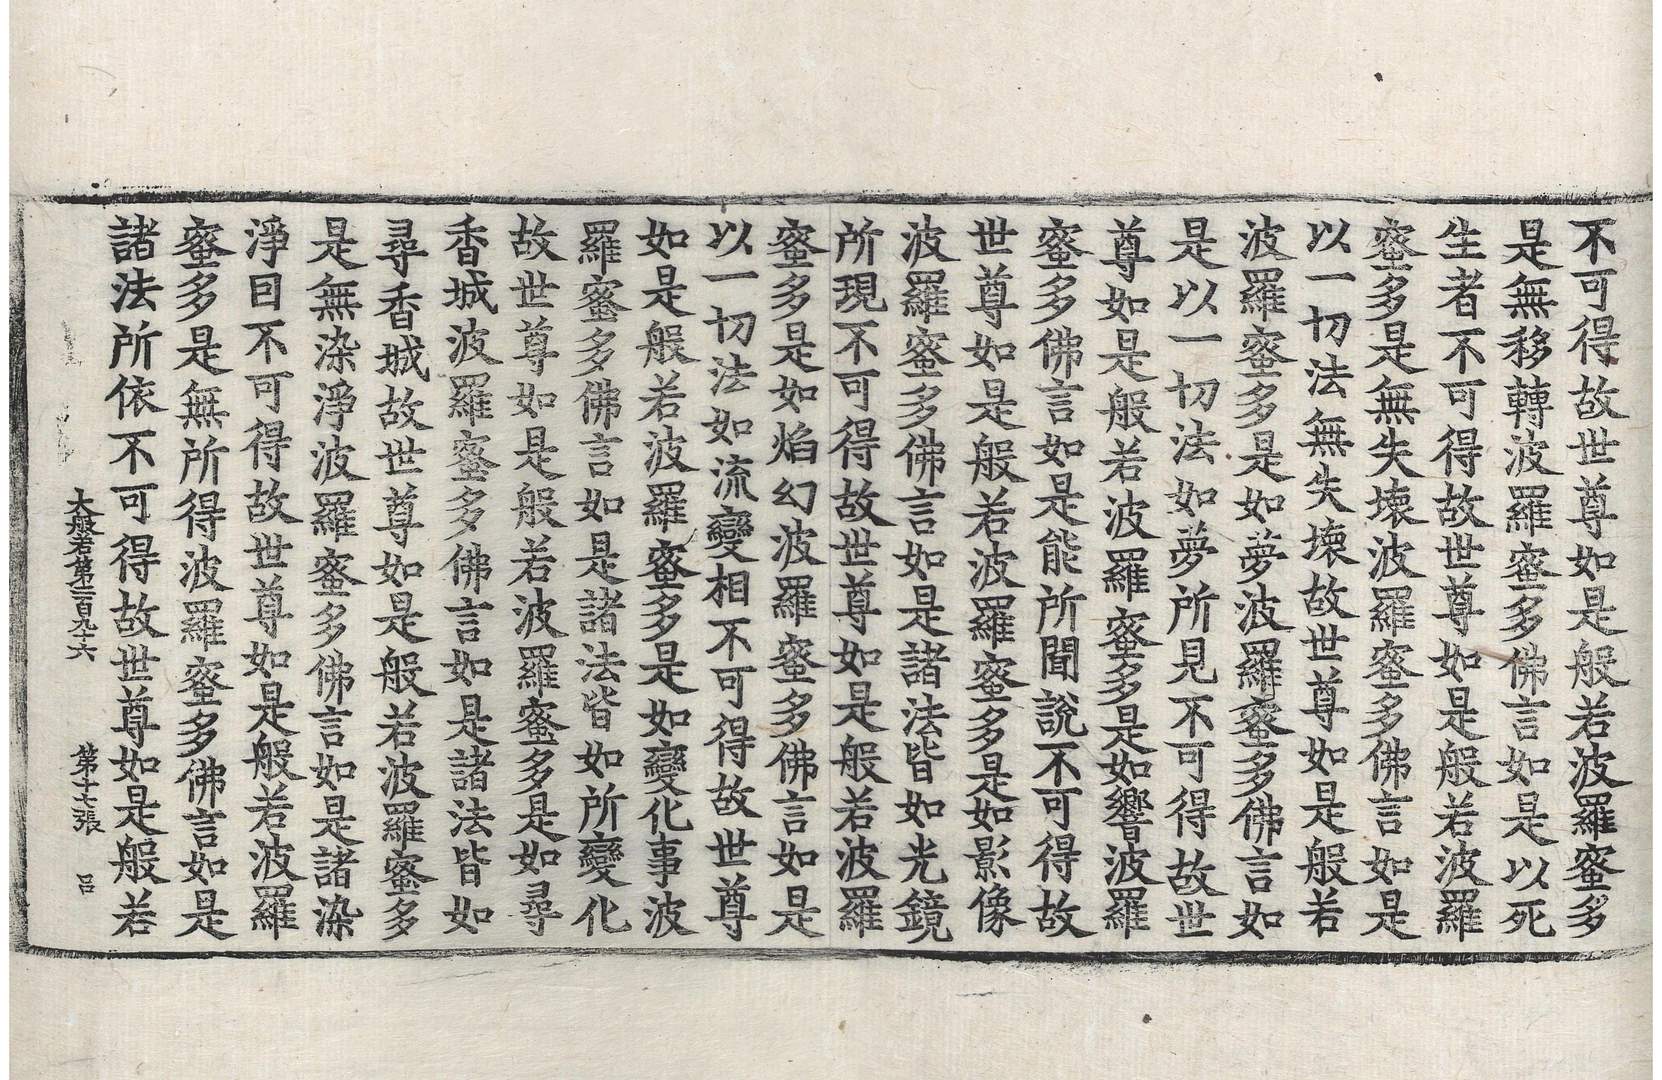 不可得故世尊如是般若波羅蜜多
是無移轉波羅蜜多佛言如是以死
生者不可得故世尊如是般若波羅
蜜多是無失壞波羅蜜多佛言如是
以一切法無失壞故世尊如是般若
波羅蜜多是如夢波羅蜜多佛言如
是以一切法如夢所見不可得故世
尊如是般若波羅蜜多是如響波羅
蜜多佛言如是能所聞說不可得故
世尊如是般若波羅蜜多是如影像
波羅蜜多佛言如是諸法皆如光鏡
所現不可得故世尊如是般若波羅
蜜多是如焰幻波羅蜜多佛言如是
以一切法如流變相不可得故世尊
如是般若波羅蜜多是如變化事波
羅蜜多佛言如是諸法皆如所變化
故世尊如是般若波羅蜜多是如尋
香城波羅蜜多佛言如是諸法皆如
尋香城故世尊如是般若波羅蜜多
是無染淨波羅蜜多佛言如是諸染
淨因不可得故世尊如是般若波羅
蜜多是無所得波羅蜜多佛言如是
諸法所依不可得故世尊如是般若
大般若第二百九十六 第十七張 呂